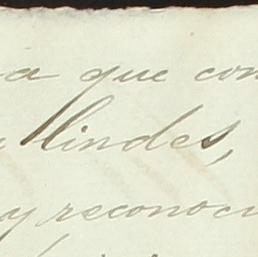 a que con
lindes,
y reconoci